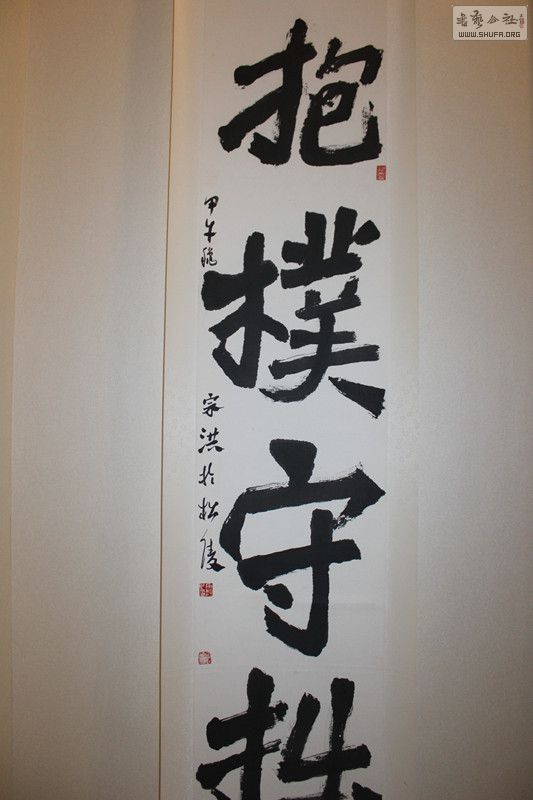 抱樸守拙
甲午
宗洪於松陵
書藝公社
WWW.SHUFA.ORG